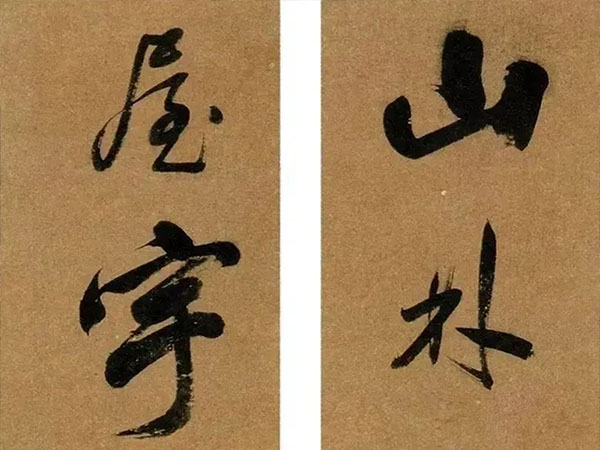 山林
屋宇